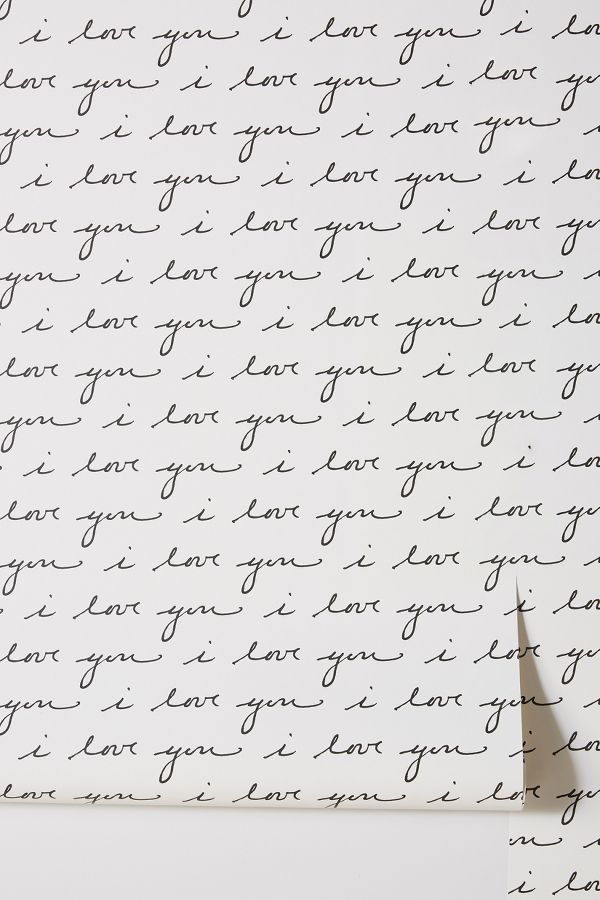 i love you i love you i lo
love you i love you i love yo
you i love you i love you i
i love you i love you i lo
love you i love you i love yo
you i love you i love you i
i love you i love you i lo
love you i love you i love yo
you i love you i love you i
i love you i love you i lo
love you i love you i love yo
you i love you i love you i
i love you i love you i lo
love you i love you i love yo
you i love you i love you i
i love you i love you i lo
love you i love you i lo yo
ou i
i lo